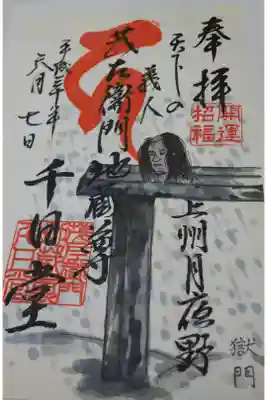 奉拝
開運
招福
上州月夜野
獄門
天下の
義人
茂左衛門地蔵尊
平成三十年
六月七日
千日堂